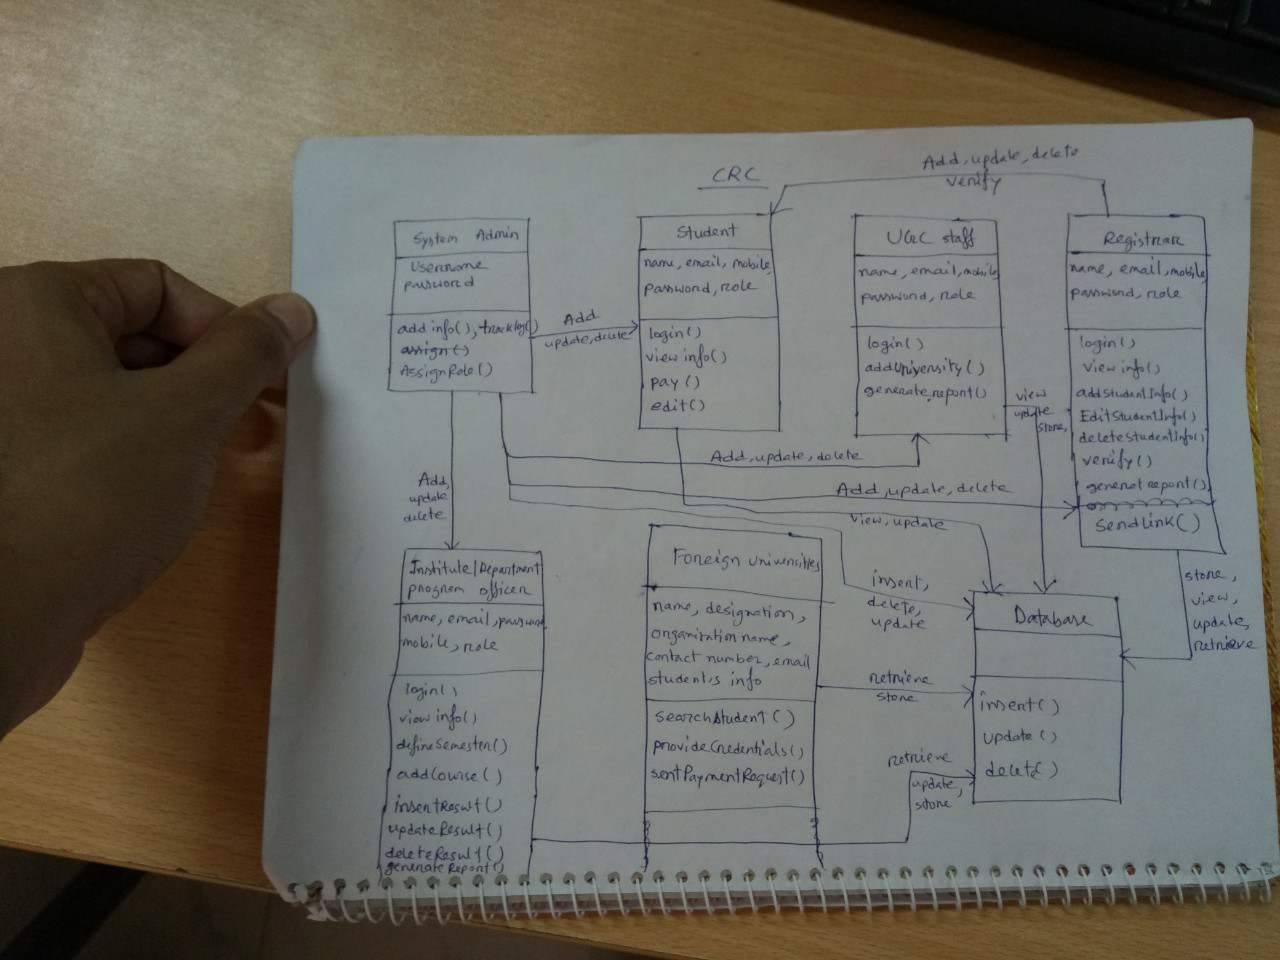 CRC
Add, update, delete
verify
System Admin
Username
password
add info(), tracklog()
AssignRole()
Add
update, delete
Student
name, email, mobile,
password, role
login()
view info()
pay()
edit()
UGC staff
name, email, mobile,
password, role
login()
addUniversity()
generate report()
view
update
store,
Registrar
name, email, mobile,
password, role
login()
view info()
addstudentInfo()
EditStudentInfo()
deletestudentInfo()
verify()
generet report()
sendLink()
Add, update, delete
Add, update, delete
view, update
Add,
update
delete
insert,
delete,
update
store,
view,
update,
retrieve
Institute/Department
program officer
name, email, password
mobile, role
login()
view info()
defineSemester()
addCourse()
insertResult()
updateResult()
deleteResult()
generateReport()
Foreign universities
name, designation,
organization name,
contact number, email
student's info
searchstudent()
provideCredentials()
sentPaymentRequest()
retrieve
store
retrieve
update,
store
Database
insert()
update()
delete()